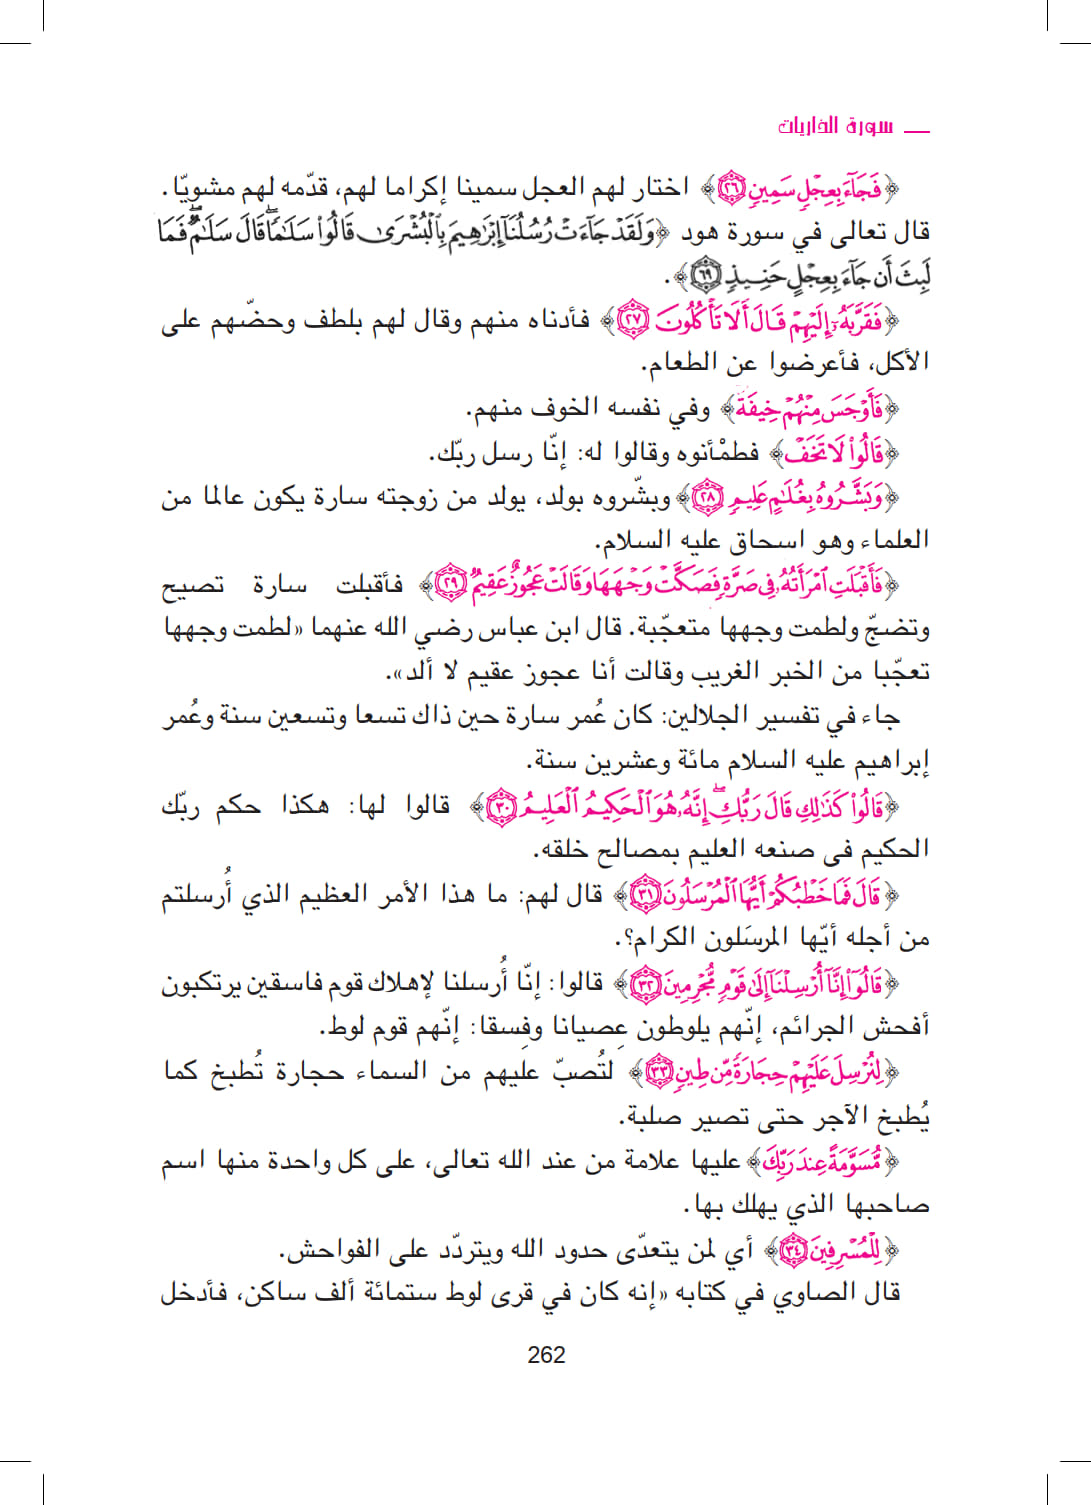 سورة الذاريات
﴿فَجَآءَ بِعِجْلٖ سَمِينٖ ٢٦﴾ اختار لهم العجل سمينا إكراما لهم، قدّمه لهم مشويّا.
قال تعالى في سورة هود ﴿وَلَقَدْ جَآءَتْ رُسُلُنَآ إِبْرَٰهِيمَ بِالْبُشْرَىٰ قَالُوا۟ سَلَٰمٗاۖ قَالَ سَلَٰمٞۖ فَمَا
لَبِثَ أَن جَآءَ بِعِجْلٍ حَنِيذٖ ٦٩﴾.
﴿فَقَرَّبَهُۥٓ إِلَيْهِمْ قَالَ أَلَا تَأْكُلُونَ ٢٧﴾ فأدناه منهم وقال لهم بلطف وحضّهم على
الأكل، فأعرضوا عن الطعام.
﴿فَأَوْجَسَ مِنْهُمْ خِيفَةٗ﴾ وفي نفسه الخوف منهم.
﴿قَالُوا۟ لَا تَخَفْ﴾ فطمْأنوه وقالوا له: إنّا رسل ربّك.
﴿وَبَشَّرُوهُ بِغُلَٰمٍ عَلِيمٖ ٢٨﴾ وبشّروه بولد، يولد من زوجته سارة يكون عالما من
العلماء وهو اسحاق عليه السلام.
﴿فَأَقْبَلَتِ امْرَأَتُهُۥ فِي صَرَّةٖ فَصَكَّتْ وَجْهَهَا وَقَالَتْ عَجُوزٌ عَقِيمٞ ٢٩﴾ فأقبلت سارة تصيح
وتضجّ ولطمت وجهها متعجّبة. قال ابن عباس رضي الله عنهما «لطمت وجهها
تعجّبا من الخبر الغريب وقالت أنا عجوز عقيم لا ألد».
جاء في تفسير الجلالين: كان عُمر سارة حين ذاك تسعا وتسعين سنة وعُمر
إبراهيم عليه السلام مائة وعشرين سنة.
﴿قَالُوا۟ كَذَٰلِكِ قَالَ رَبُّكِۖ إِنَّهُۥ هُوَ الْحَكِيمُ الْعَلِيمُ ٣٠﴾ قالوا لها: هكذا حكم ربّك
الحكيم فى صنعه العليم بمصالح خلقه.
﴿قَالَ فَمَا خَطْبُكُمْ أَيُّهَا الْمُرْسَلُونَ ٣١﴾ قال لهم: ما هذا الأمر العظيم الذي أُرسلتم
من أجله أيّها المرسَلون الكرام؟.
﴿قَالُوٓا۟ إِنَّآ أُرْسِلْنَآ إِلَىٰ قَوْمٖ مُّجْرِمِينَ ٣٢﴾ قالوا: إنّا أُرسلنا لإهلاك قوم فاسقين يرتكبون
أفحش الجرائم، إنّهم يلوطون عِصيانا وفِسقا: إنّهم قوم لوط.
﴿لِنُرْسِلَ عَلَيْهِمْ حِجَارَةٗ مِّن طِينٖ ٣٣﴾ لتُصبّ عليهم من السماء حجارة تُطبخ كما
يُطبخ الآجر حتى تصير صلبة.
﴿مُّسَوَّمَةً عِندَ رَبِّكَ﴾ عليها علامة من عند الله تعالى، على كل واحدة منها اسم
صاحبها الذي يهلك بها.
﴿لِلْمُسْرِفِينَ ٣٤﴾ أي لمن يتعدّى حدود الله ويتردّد على الفواحش.
قال الصاوي في كتابه «إنه كان في قرى لوط ستمائة ألف ساكن، فأدخل
262